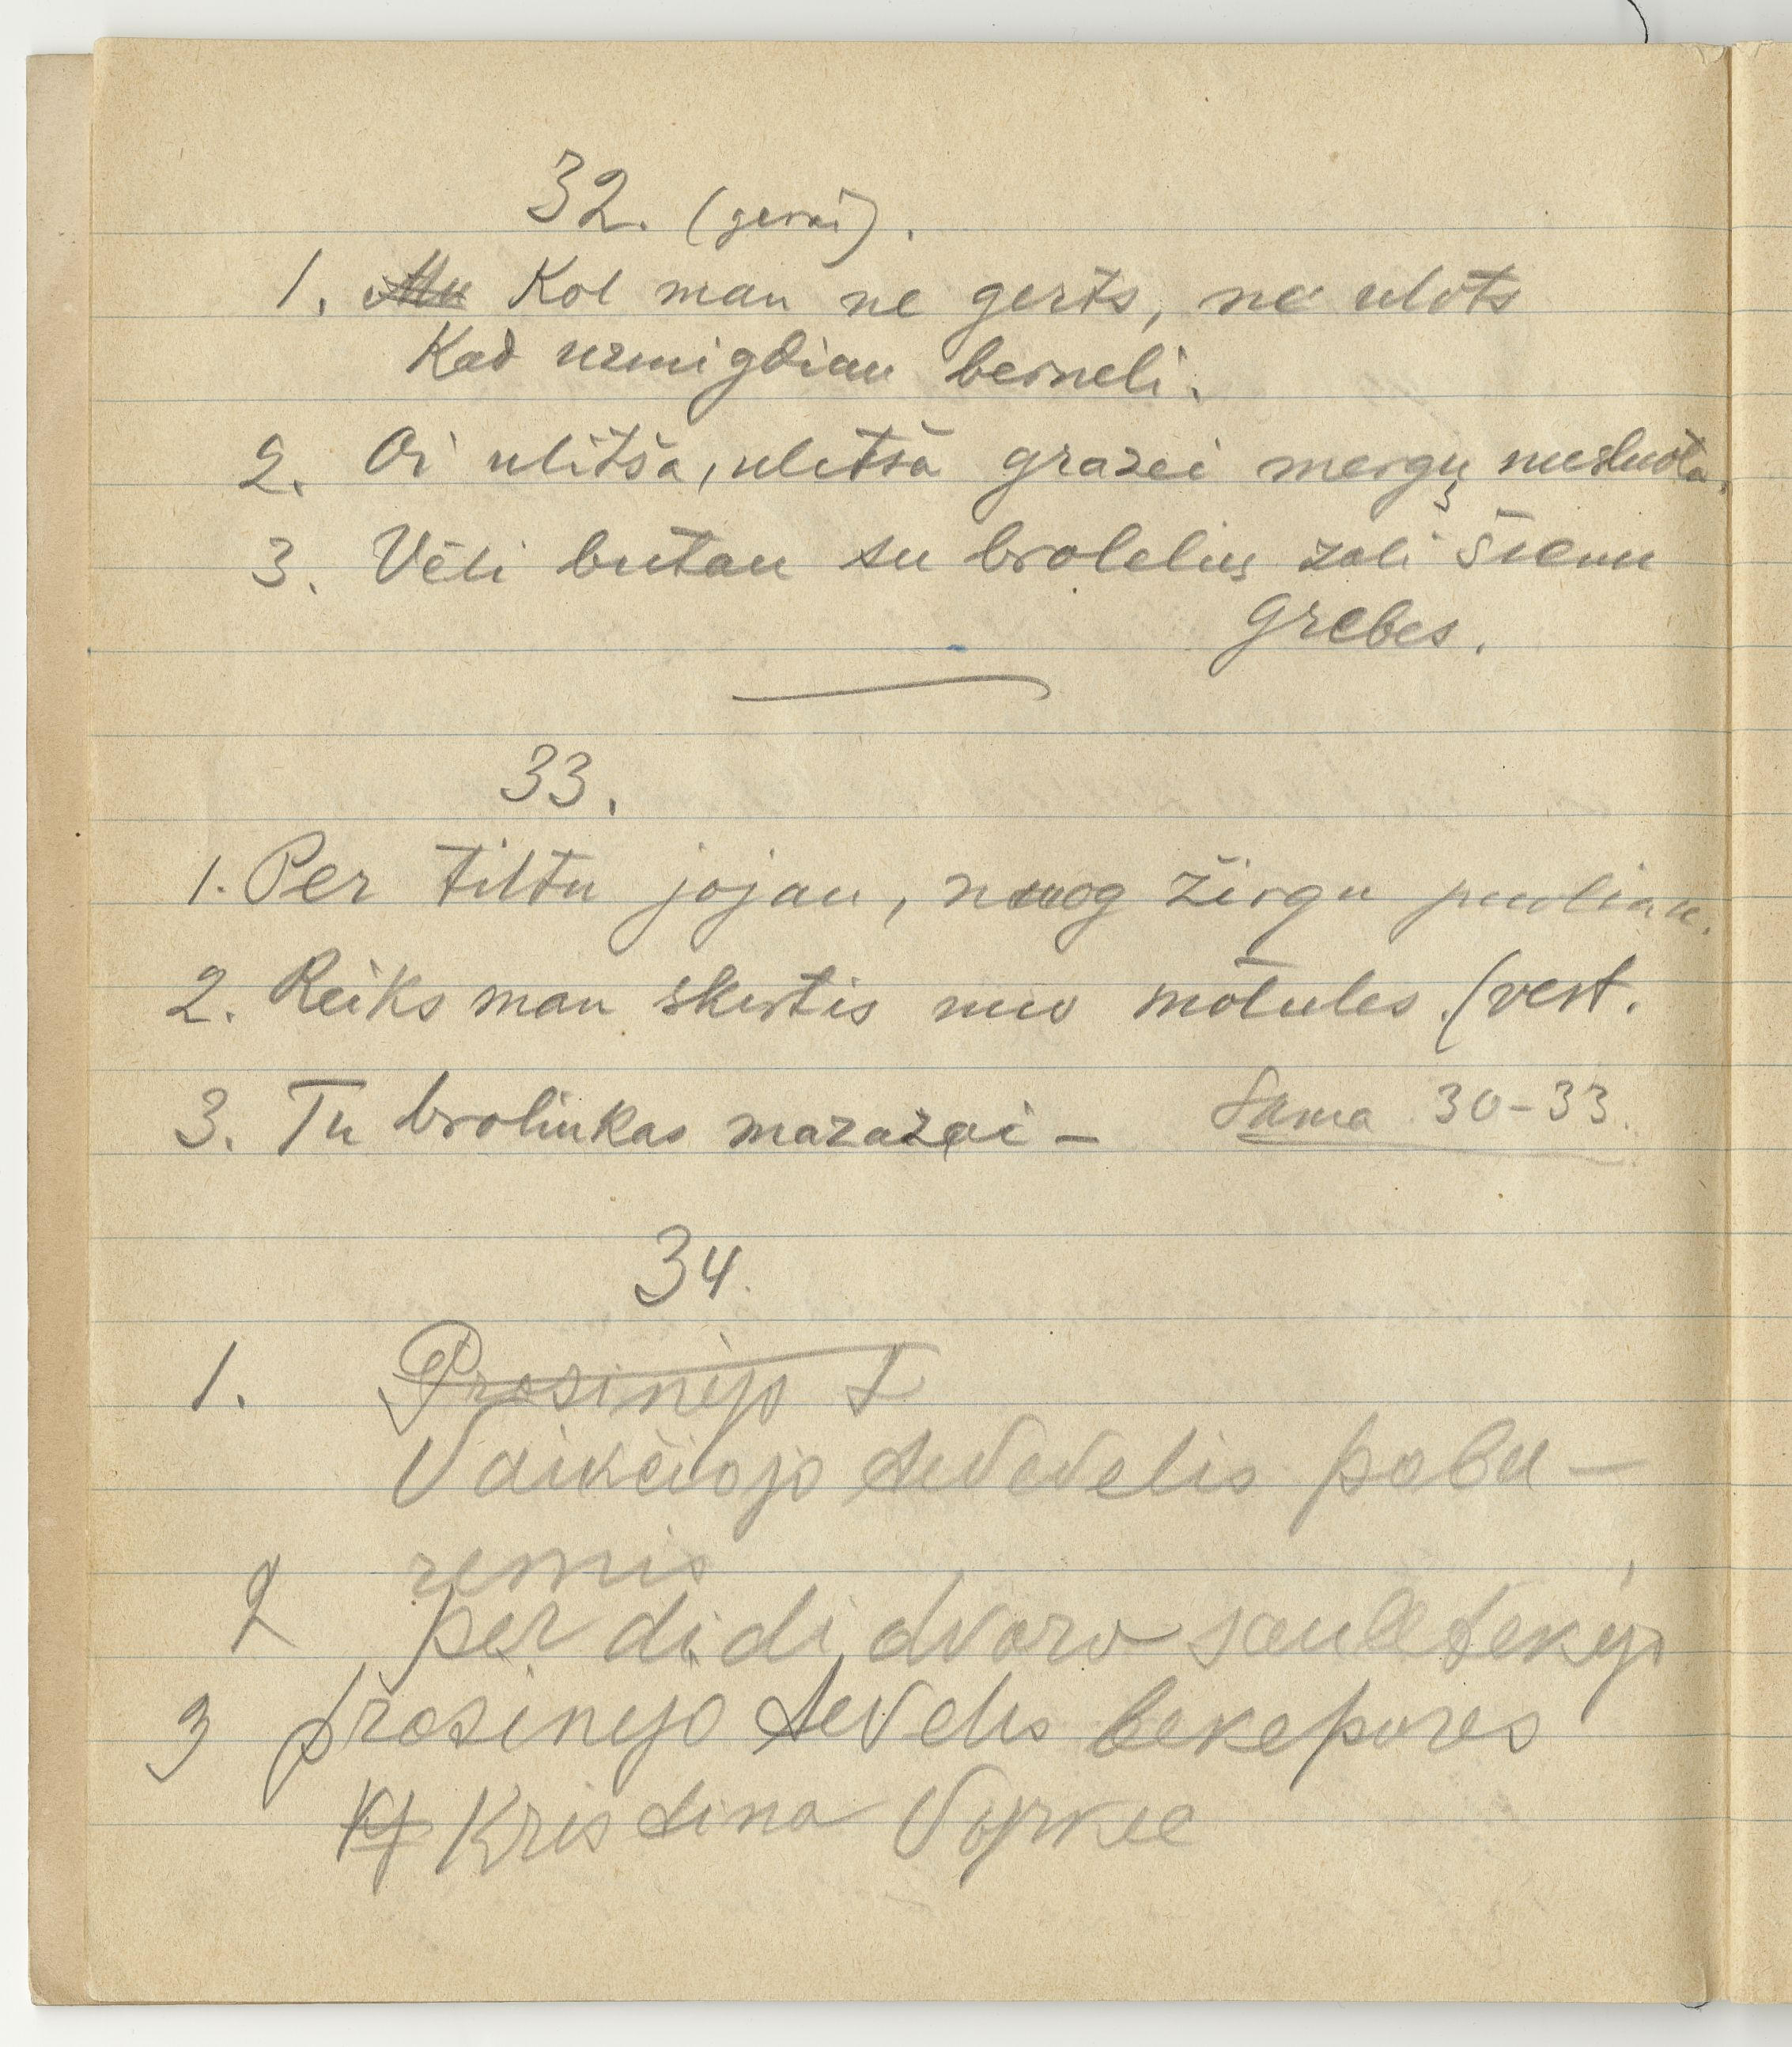 32. (gerai).
1. Kol man ne gerts, ne ulots
Kad uzmigdiau berneli.
2. Oi ulitša, ulitša grazei mergų nušluota.
3. Vēli butau su brolelius zali šienu
grebes.
33.
1. Per tiltu jojau, nuog žirgu puoliau.
2. Reiks man skirtis nuo motules. (vert.
3. Tu brolinkas mazazai - Sama 30-33.
34.
1. Prosinėjo t
Vaikčiojo tevevelis pabu-
remis
2 per didi dvaro saule tekėjo
3 prosinejo tevelis bekepores
Kristina Vyrkee